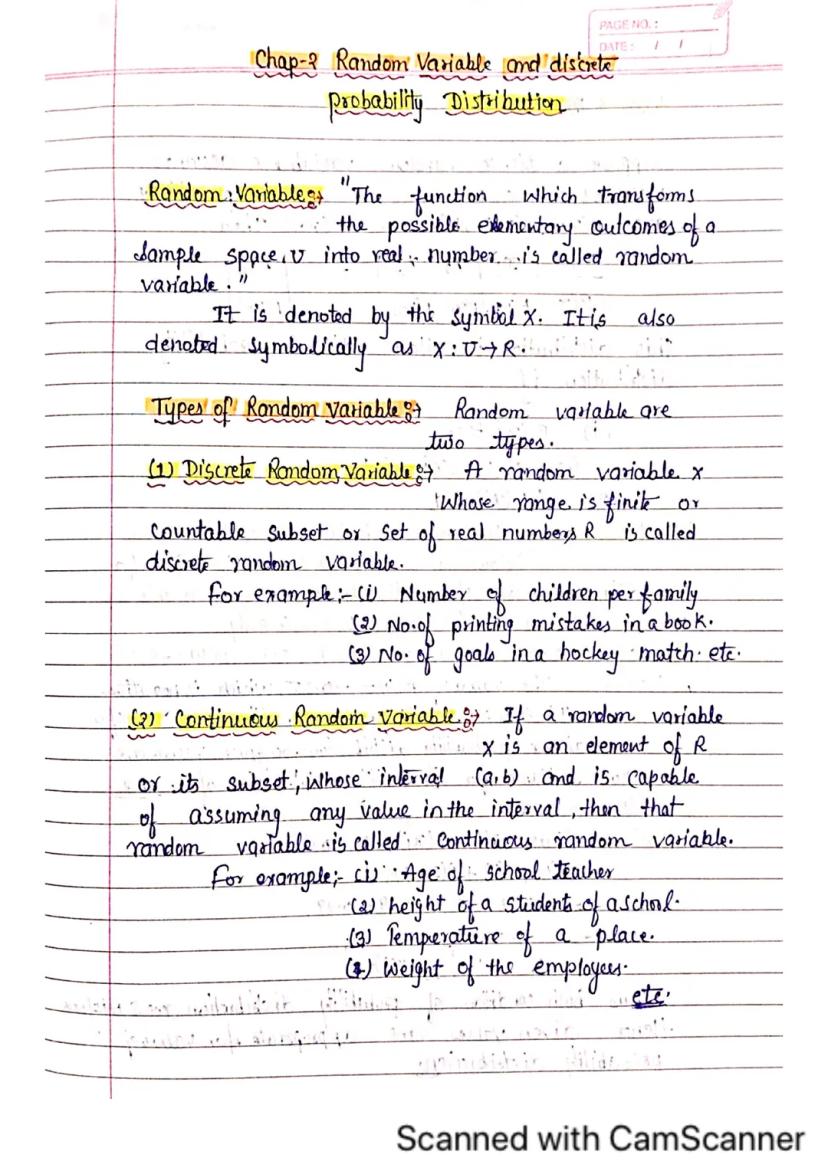 PAGE NO. :
DATE : / /
Chap-2 Random Variable and discrete
probability Distribution
Random Variable :→ "The function which transforms
the possible elementary outcomes of a
sample space, U into real number is called random
variable."
It is denoted by the symbol X. It is also
denoted symbolically as X : U → R.
Types of Random Variable :→ Random variable are
two types.
(1) Discrete Random Variable :→ A random variable x
whose range is finite or
countable subset or set of real numbers R is called
discrete random variable.
for example :- (i) Number of children per family
(2) No. of printing mistakes in a book.
(3) No. of goals in a hockey match. etc.
(2) Continuous Random Variable :→ If a random variable
X is an element of R
or its subset, whose interval (a,b) and is capable
of assuming any value in the interval, then that
random variable is called Continuous random variable.
for example ;- (i) Age of school teacher
(2) height of a students of a school.
(3) Temperature of a place.
(4) Weight of the employees.
etc.
Scanned with CamScanner